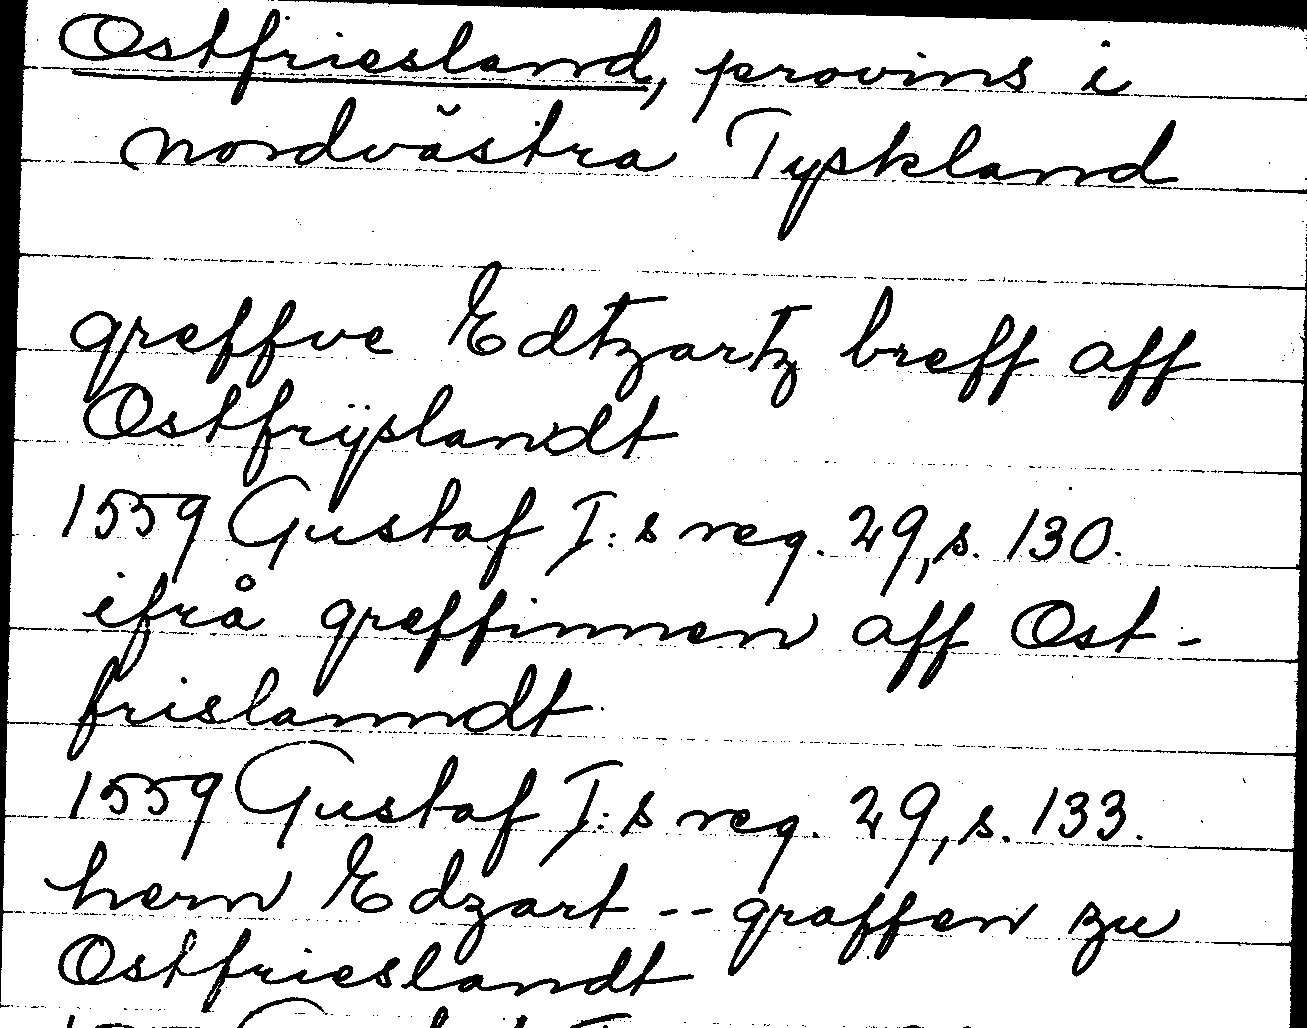 Ostfriesland, provins i
nordvästra Tyskland
greffve Edtzartz breff aff
Ostfrÿslandt
1559 Gustaf I:s reg. 29, s. 130.
ifrå greffinnen aff Ost-
frislanndt
1559 Gustaf I:s reg. 29, s. 133.
hern Edzart -- graffen zu
Ostfrieslandt